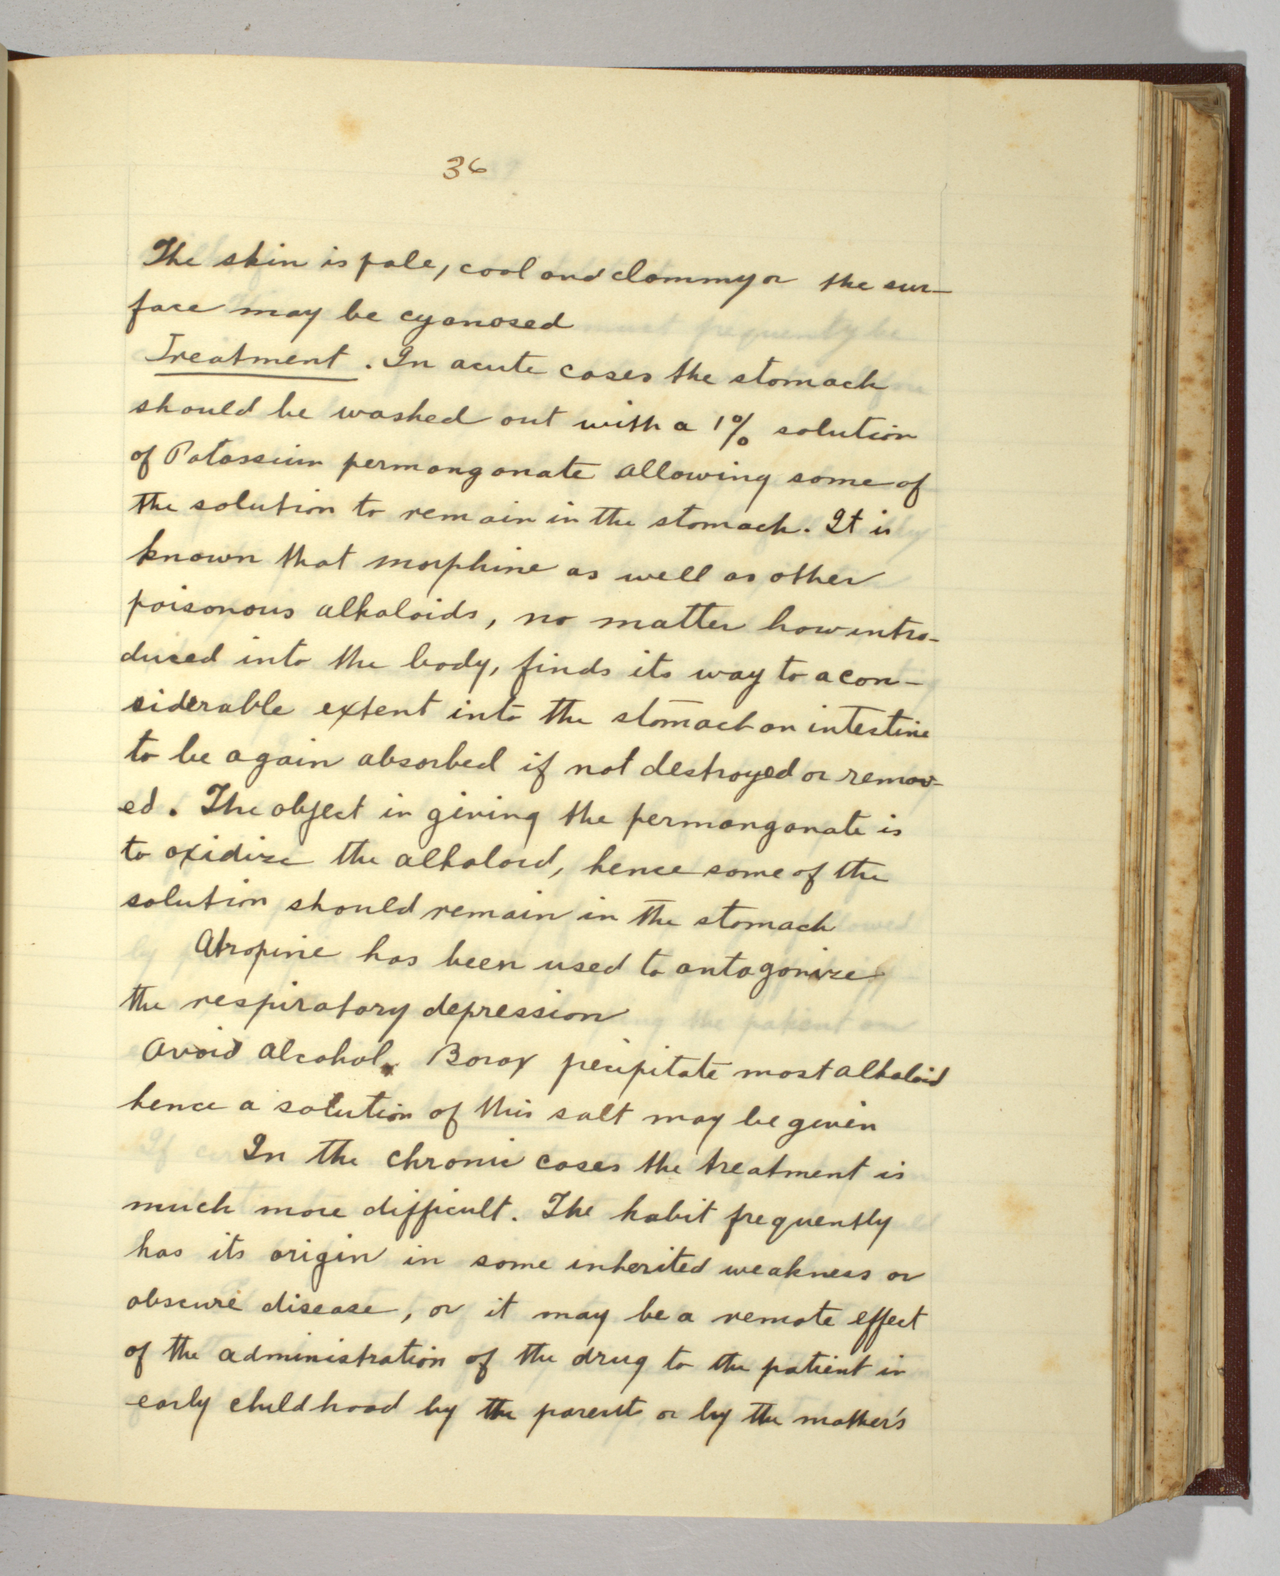 36
The skin is pale, cool and clammy or the sur-
face may be cyanosed
Treatment. In acute cases the stomach
should be washed out with a 1% solution
of Potassium permanganate allowing some of
the solution to remain in the stomach. It is
known that morphine as well as other
poisonous alkaloids, no matter how intro-
duced into the body, finds its way to a con-
siderable extent into the stomach or intestine
to be again absorbed if not destroyed or remov-
ed. The object in giving the permanganate is
to oxidize the alkaloid, hence some of the
solution should remain in the stomach
Atropine has been used to antagonize
the respiratory depression
Avoid alcohol. Borax pecipitate most alkaloid
hence a solution of this salt may be given
In the chronic cases the treatment is
much more difficult. The habit frequently
has its origin in some inherited weakness or
obscure disease, or it may be a remote effect
of the administration of the drug to the patient in
early childhood by the parents or by the mother's